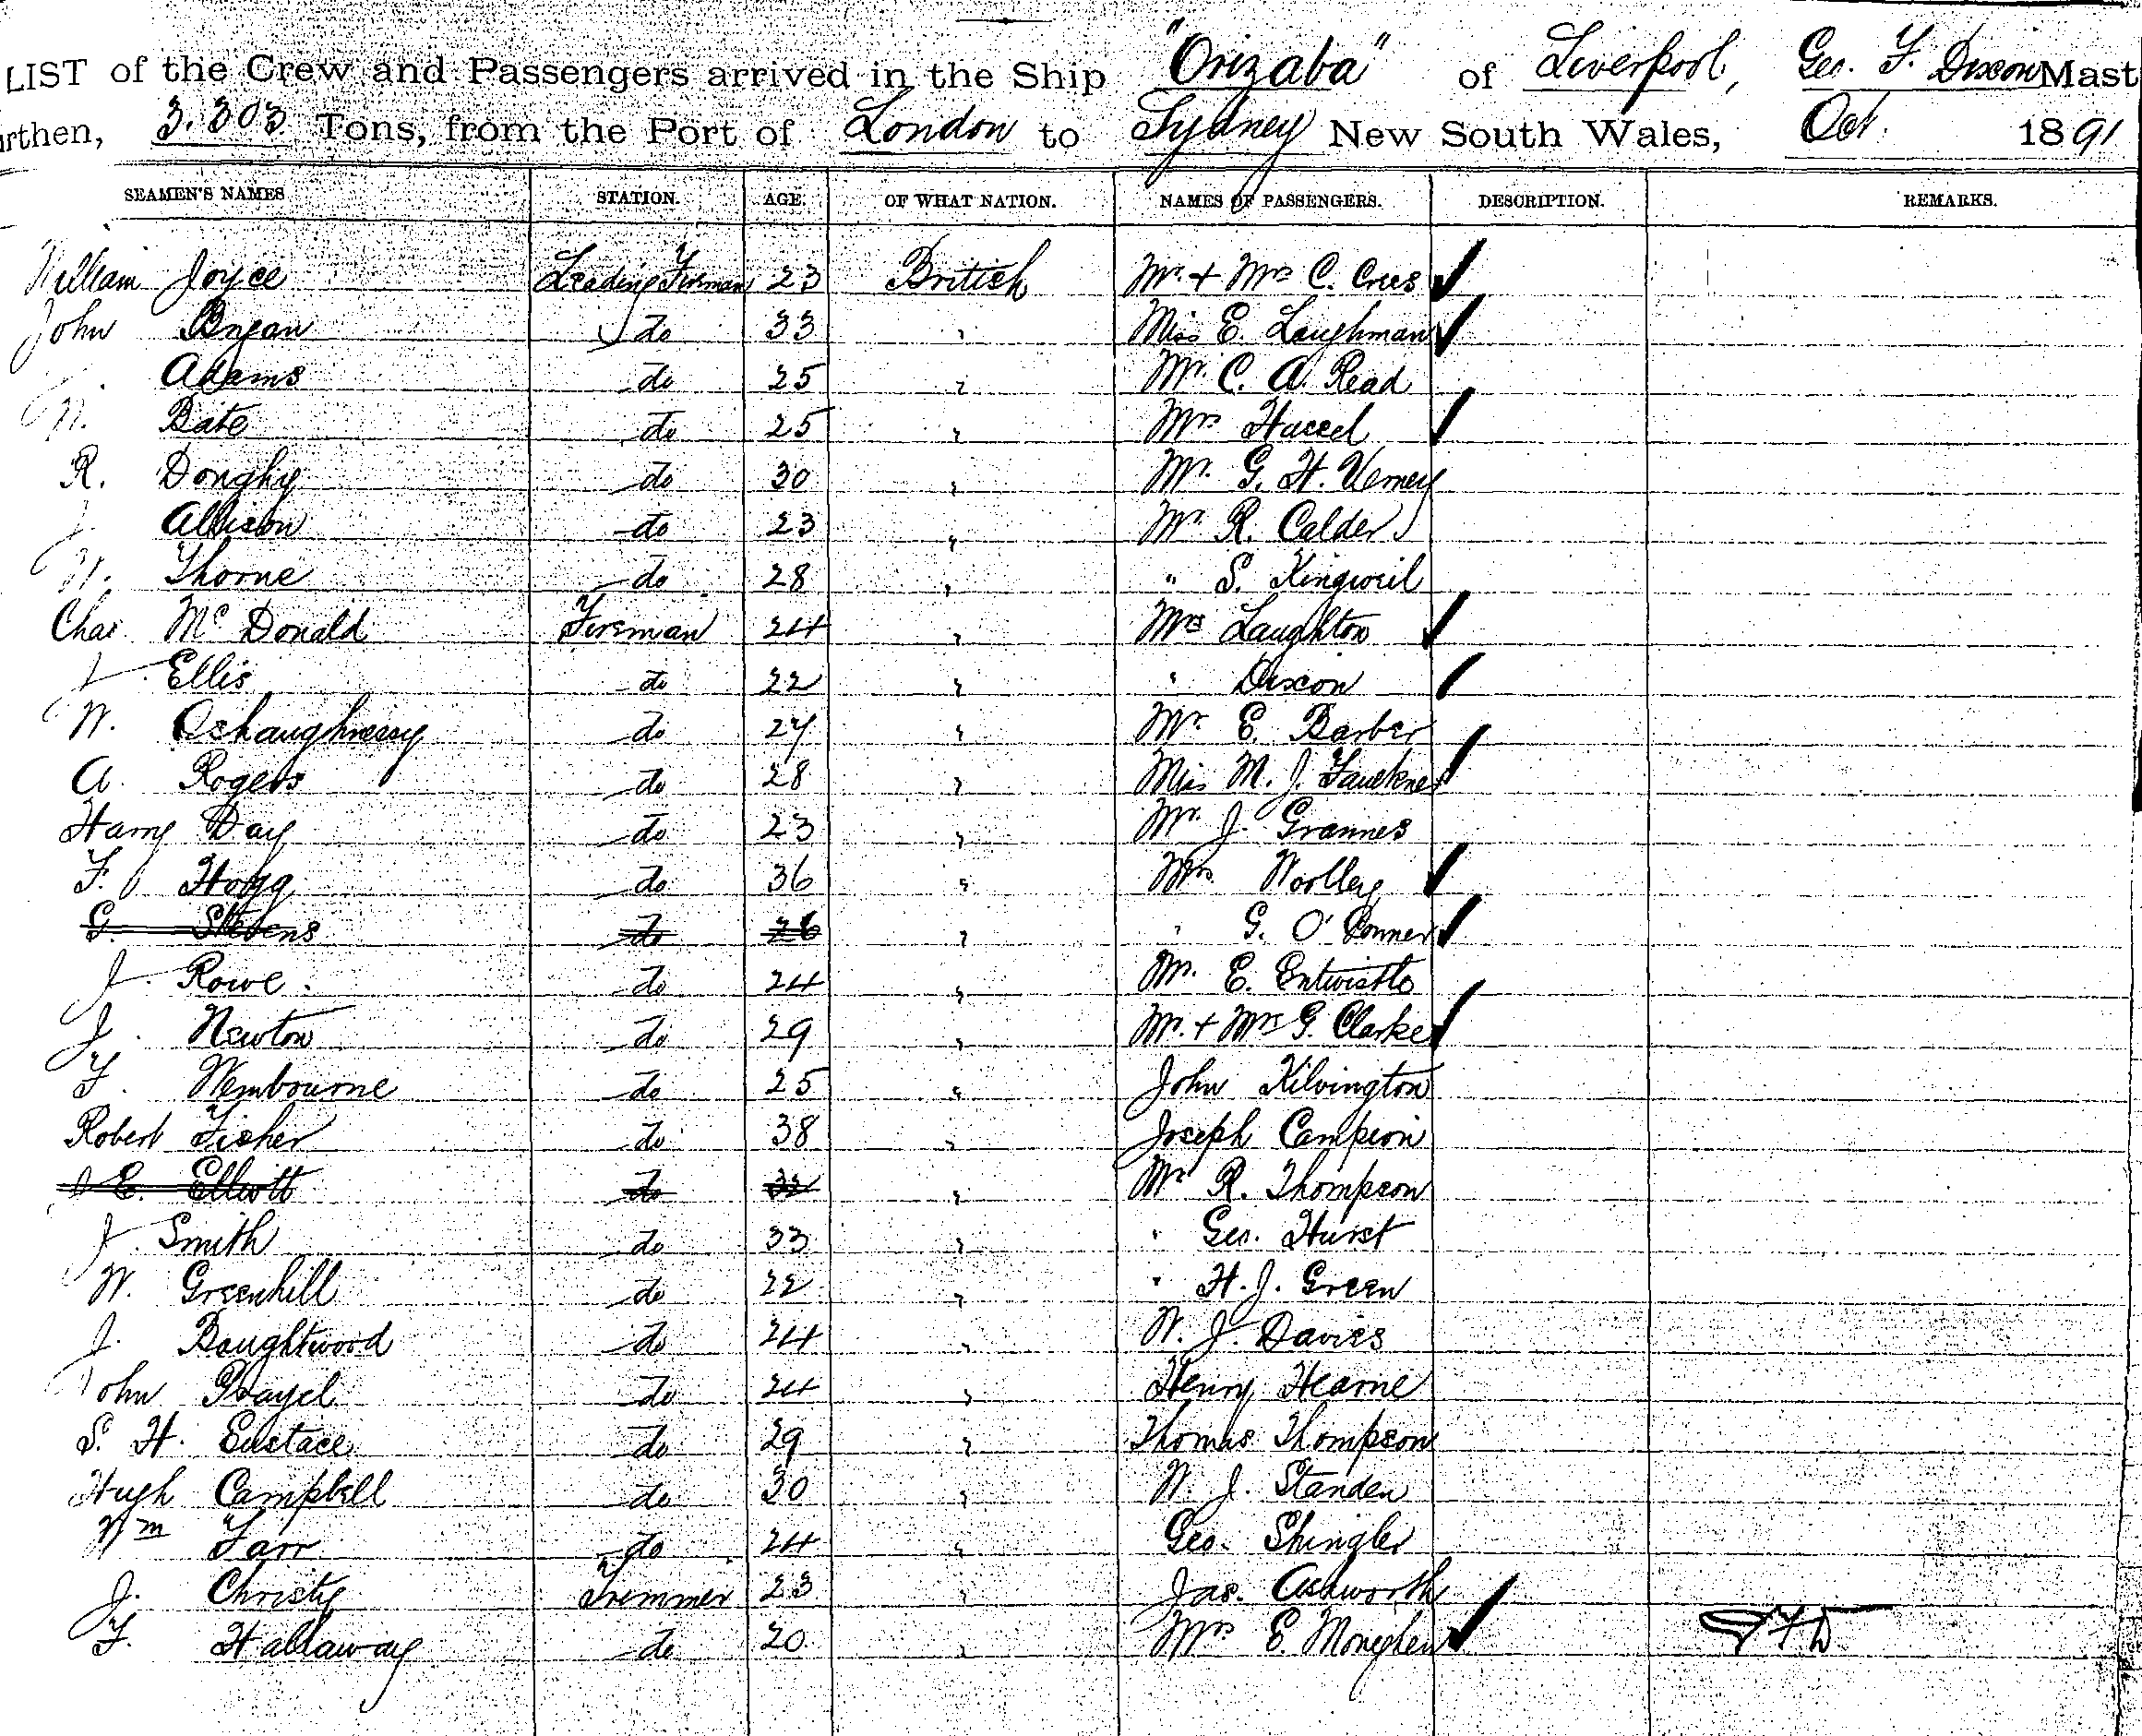 LIST of the Crew and Passengers arrived in the Ship "Orizaba" of Liverpool, Geo. F. Dixon Mast
urthen, 3.303 Tons, from the Port of London to Sydney New South Wales, Oct. 1891
SEAMEN'S NAMES STATION. AGE. OF WHAT NATION. NAMES OF PASSENGERS. DESCRIPTION. REMARKS.
William Joyce Leading Fireman 23 British Mr. + Mrs C. Crees
John Bryan do 33 " Miss E. Laughman
Adams do 25 " Mr. C. A. Read
Bate do 25 " Mrs
R. Donghy do 30 " Mr. G. H. Verney
J. Allison do 23 " Mr R. Calder
Thorne do 28 " " S. Kingwill
Chas McDonald Fireman 24 " Mrs Laughton
J. Ellis do 22 " " Dixon
W. Oshaughnessy do 27 " Mr. E. Barber
A. Rogers do 28 " Miss M. J. Faulkner
Harry Day do 23 " Mr. J. Grannes
F. Hogg do 36 " Mrs Woolley
G. Stevens do 26 " " G. O'Conner
J. Rowe do 24 " Mr. E. Entwistle
J. Newton do 29 " Mr. + Mrs G. Clarke
F. Wembourne do 25 " John Kilvington
Robert Fisher do 38 " Joseph Campion
E. Elliott do 32 " Mr R. Thompson
J. Smith do 33 " " Geo. Hurst
W. Greenhill do 22 " " H. J. Green
J. Boughtwood do 24 " W. J. Davies
John do 24 " Henry Hearne
S. H. Eustace do 29 " Thomas Thompson
Hugh Campbell do 30 " W. J. Standen
Wm Farr do 24 " Geo. Shingler
J. Christy Trimmer 23 " Jas. Ashworth
F. Hallaway do 20 " Mrs E. Moneghen